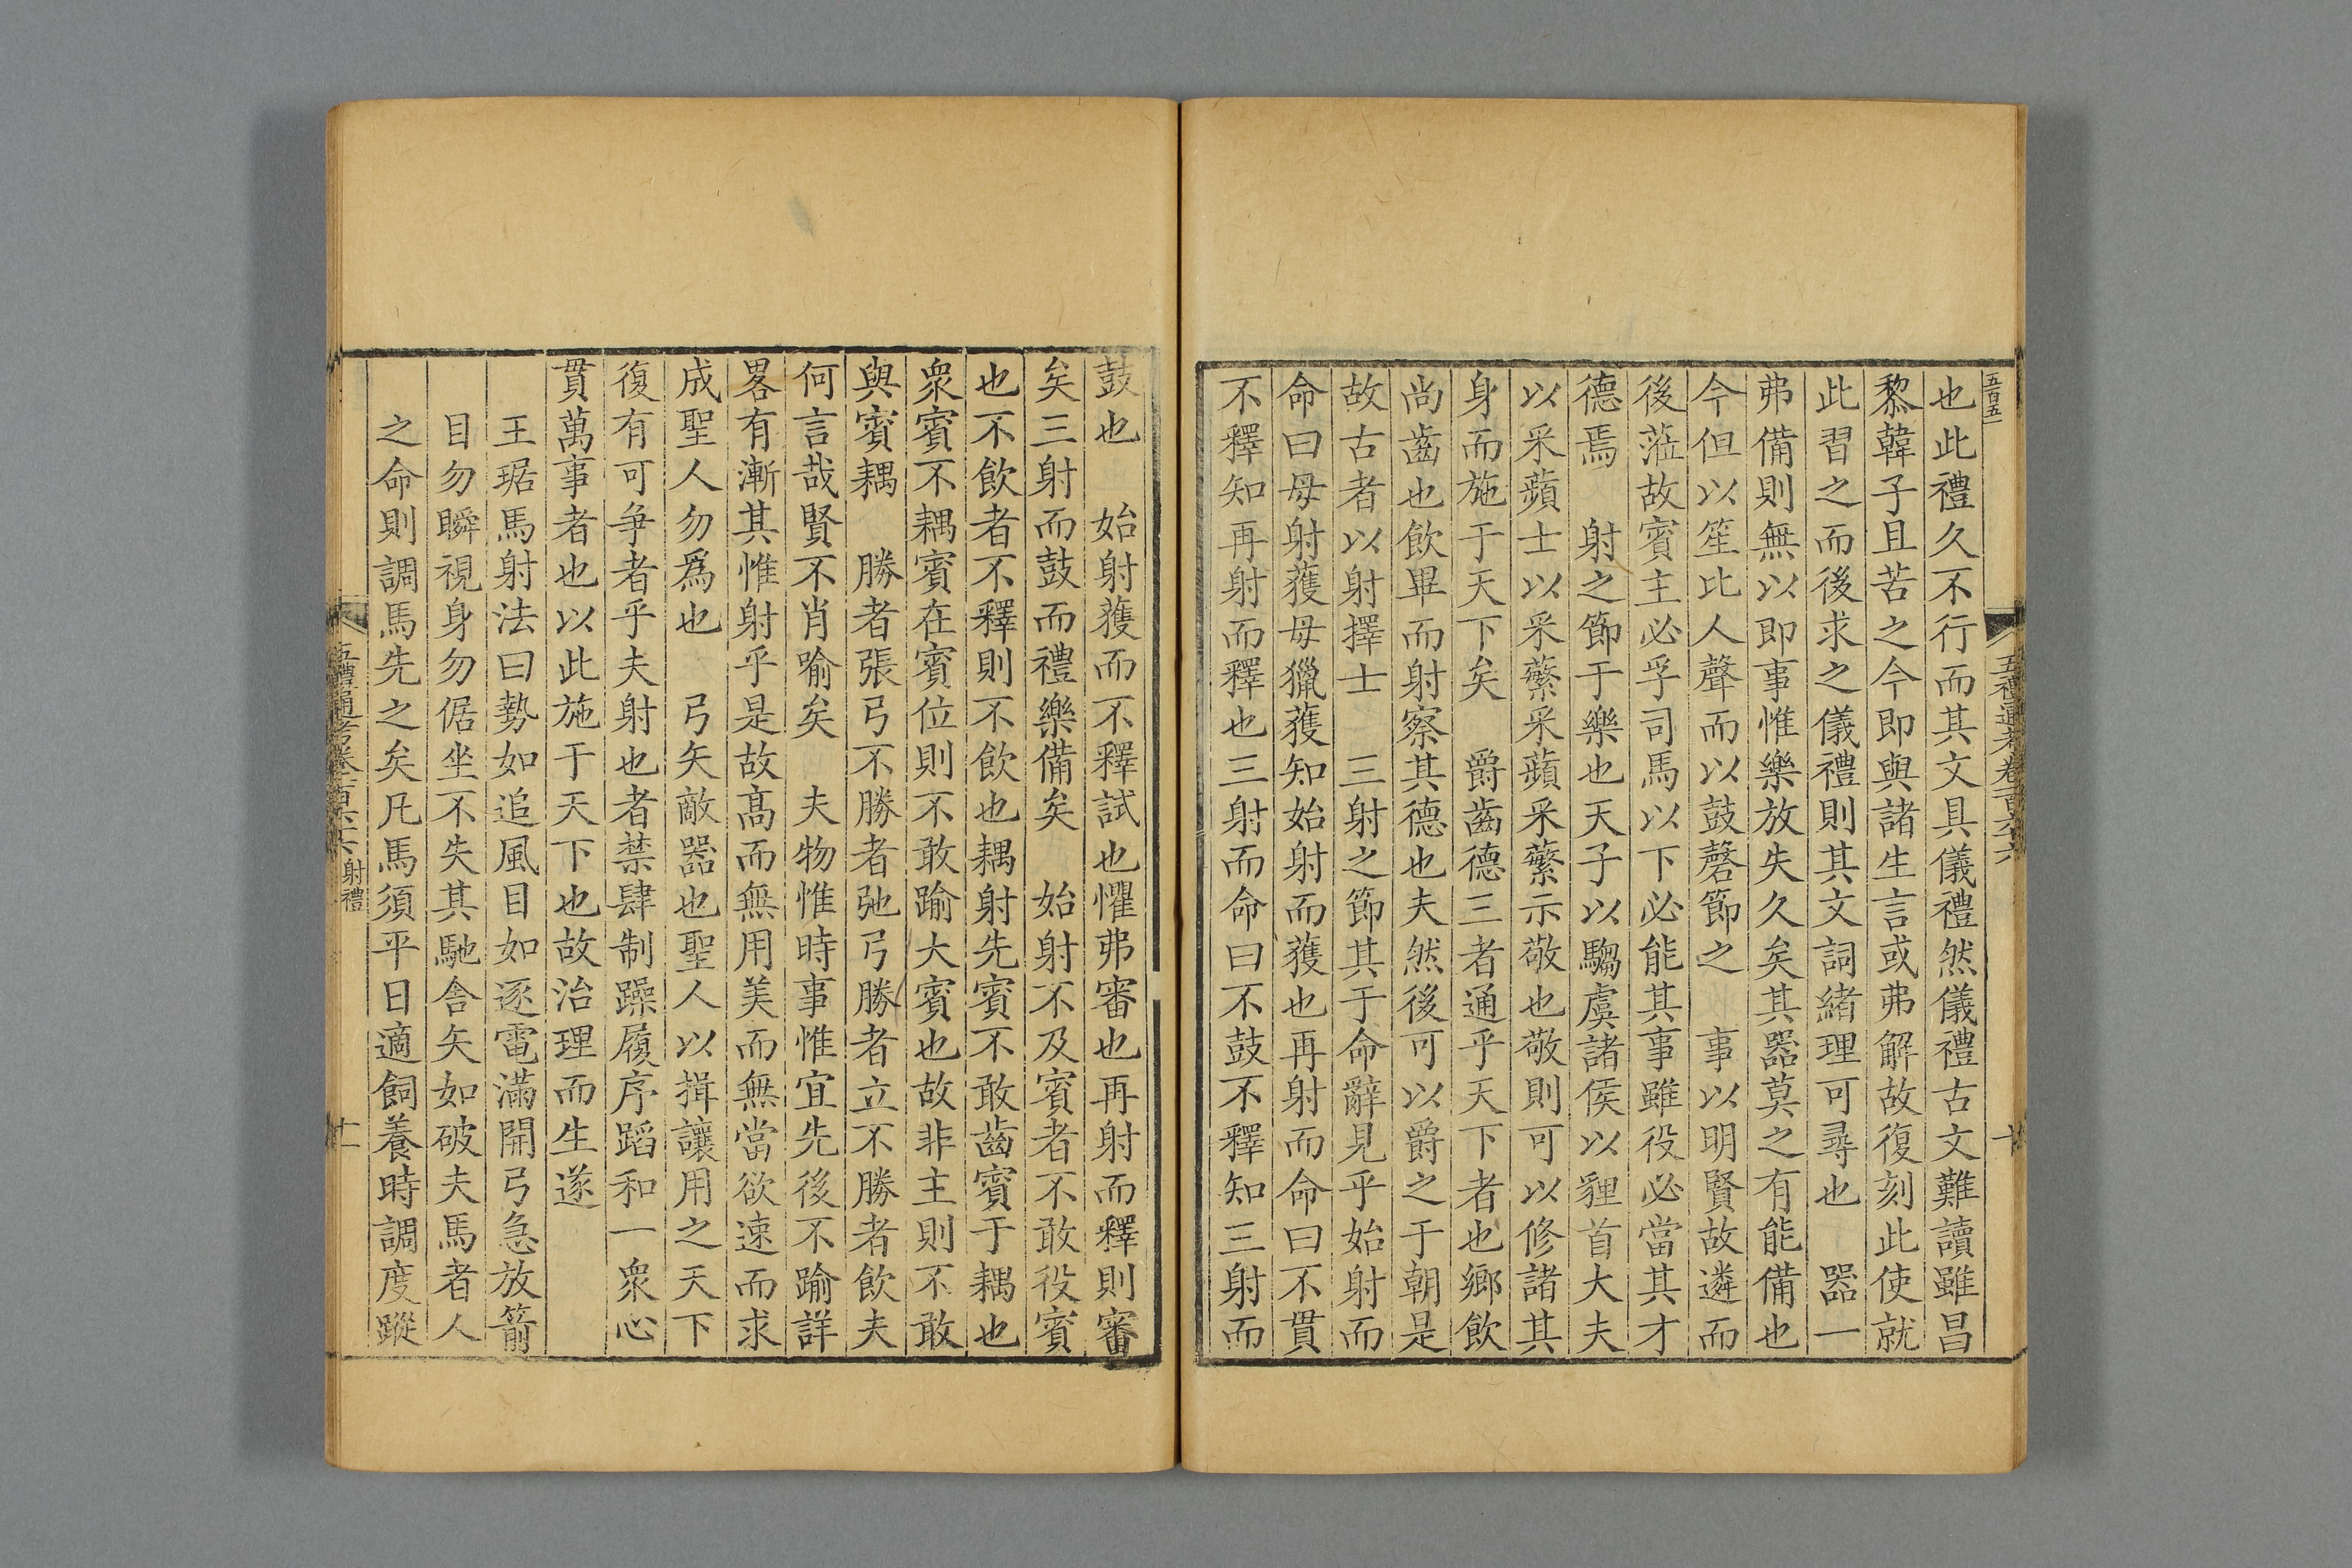 五百五
五禮通考卷一百六十六
十
也此禮久不行而其文具儀禮然儀禮古文難讀雖昌
黎韓子且苦之今即與諸生言或弗解故復刻此使就
此習之而後求之儀禮則其文詞緒理可尋也　器一
弗備則無以即事惟樂放失久矣其器莫之有能備也
今但以笙比人聲而以鼓磬節之　事以明賢故遴而
後蒞故賓主必孚司馬以下必能其事雖役必當其才
德焉　射之節于樂也天子以騶虞諸侯以貍首大夫
以采蘋士以采蘩采蘋采蘩示敬也敬則可以修諸其
身而施于天下矣　爵齒德三者通乎天下者也鄉飲
尚齒也飲畢而射察其德也夫然後可以爵之于朝是
故古者以射擇士　三射之節其于命辭見乎始射而
命曰毋射獲毋獵獲知始射而獲也再射而命曰不貫
不釋知再射而釋也三射而命曰不鼓不釋知三射而
鼓也　始射獲而不釋試也懼弗審也再射而釋則審
矣三射而鼓而禮樂備矣　始射不及賓者不敢役賓
也不飲者不釋則不飲也耦射先賓不敢齒賓于耦也
衆賓不耦賓在賓位則不敢踰大賓也故非主則不敢
與賓耦　勝者張弓不勝者弛弓勝者立不勝者飲夫
何言哉賢不肖喻矣　夫物惟時事惟宜先後不踰詳
畧有漸其惟射乎是故高而無用美而無當欲速而求
成聖人勿爲也　弓矢敵器也聖人以揖讓用之天下
復有可爭者乎夫射也者禁肆制躁履序蹈和一衆心
貫萬事者也以此施于天下也故治理而生遂
王琚馬射法曰勢如追風目如逐電滿開弓急放箭
目勿瞬視身勿倨坐不失其馳舍矢如破夫馬者人
之命則調馬先之矣凡馬須平日適飼養時調度蹤
五禮通考卷一百六十六　射禮
十一